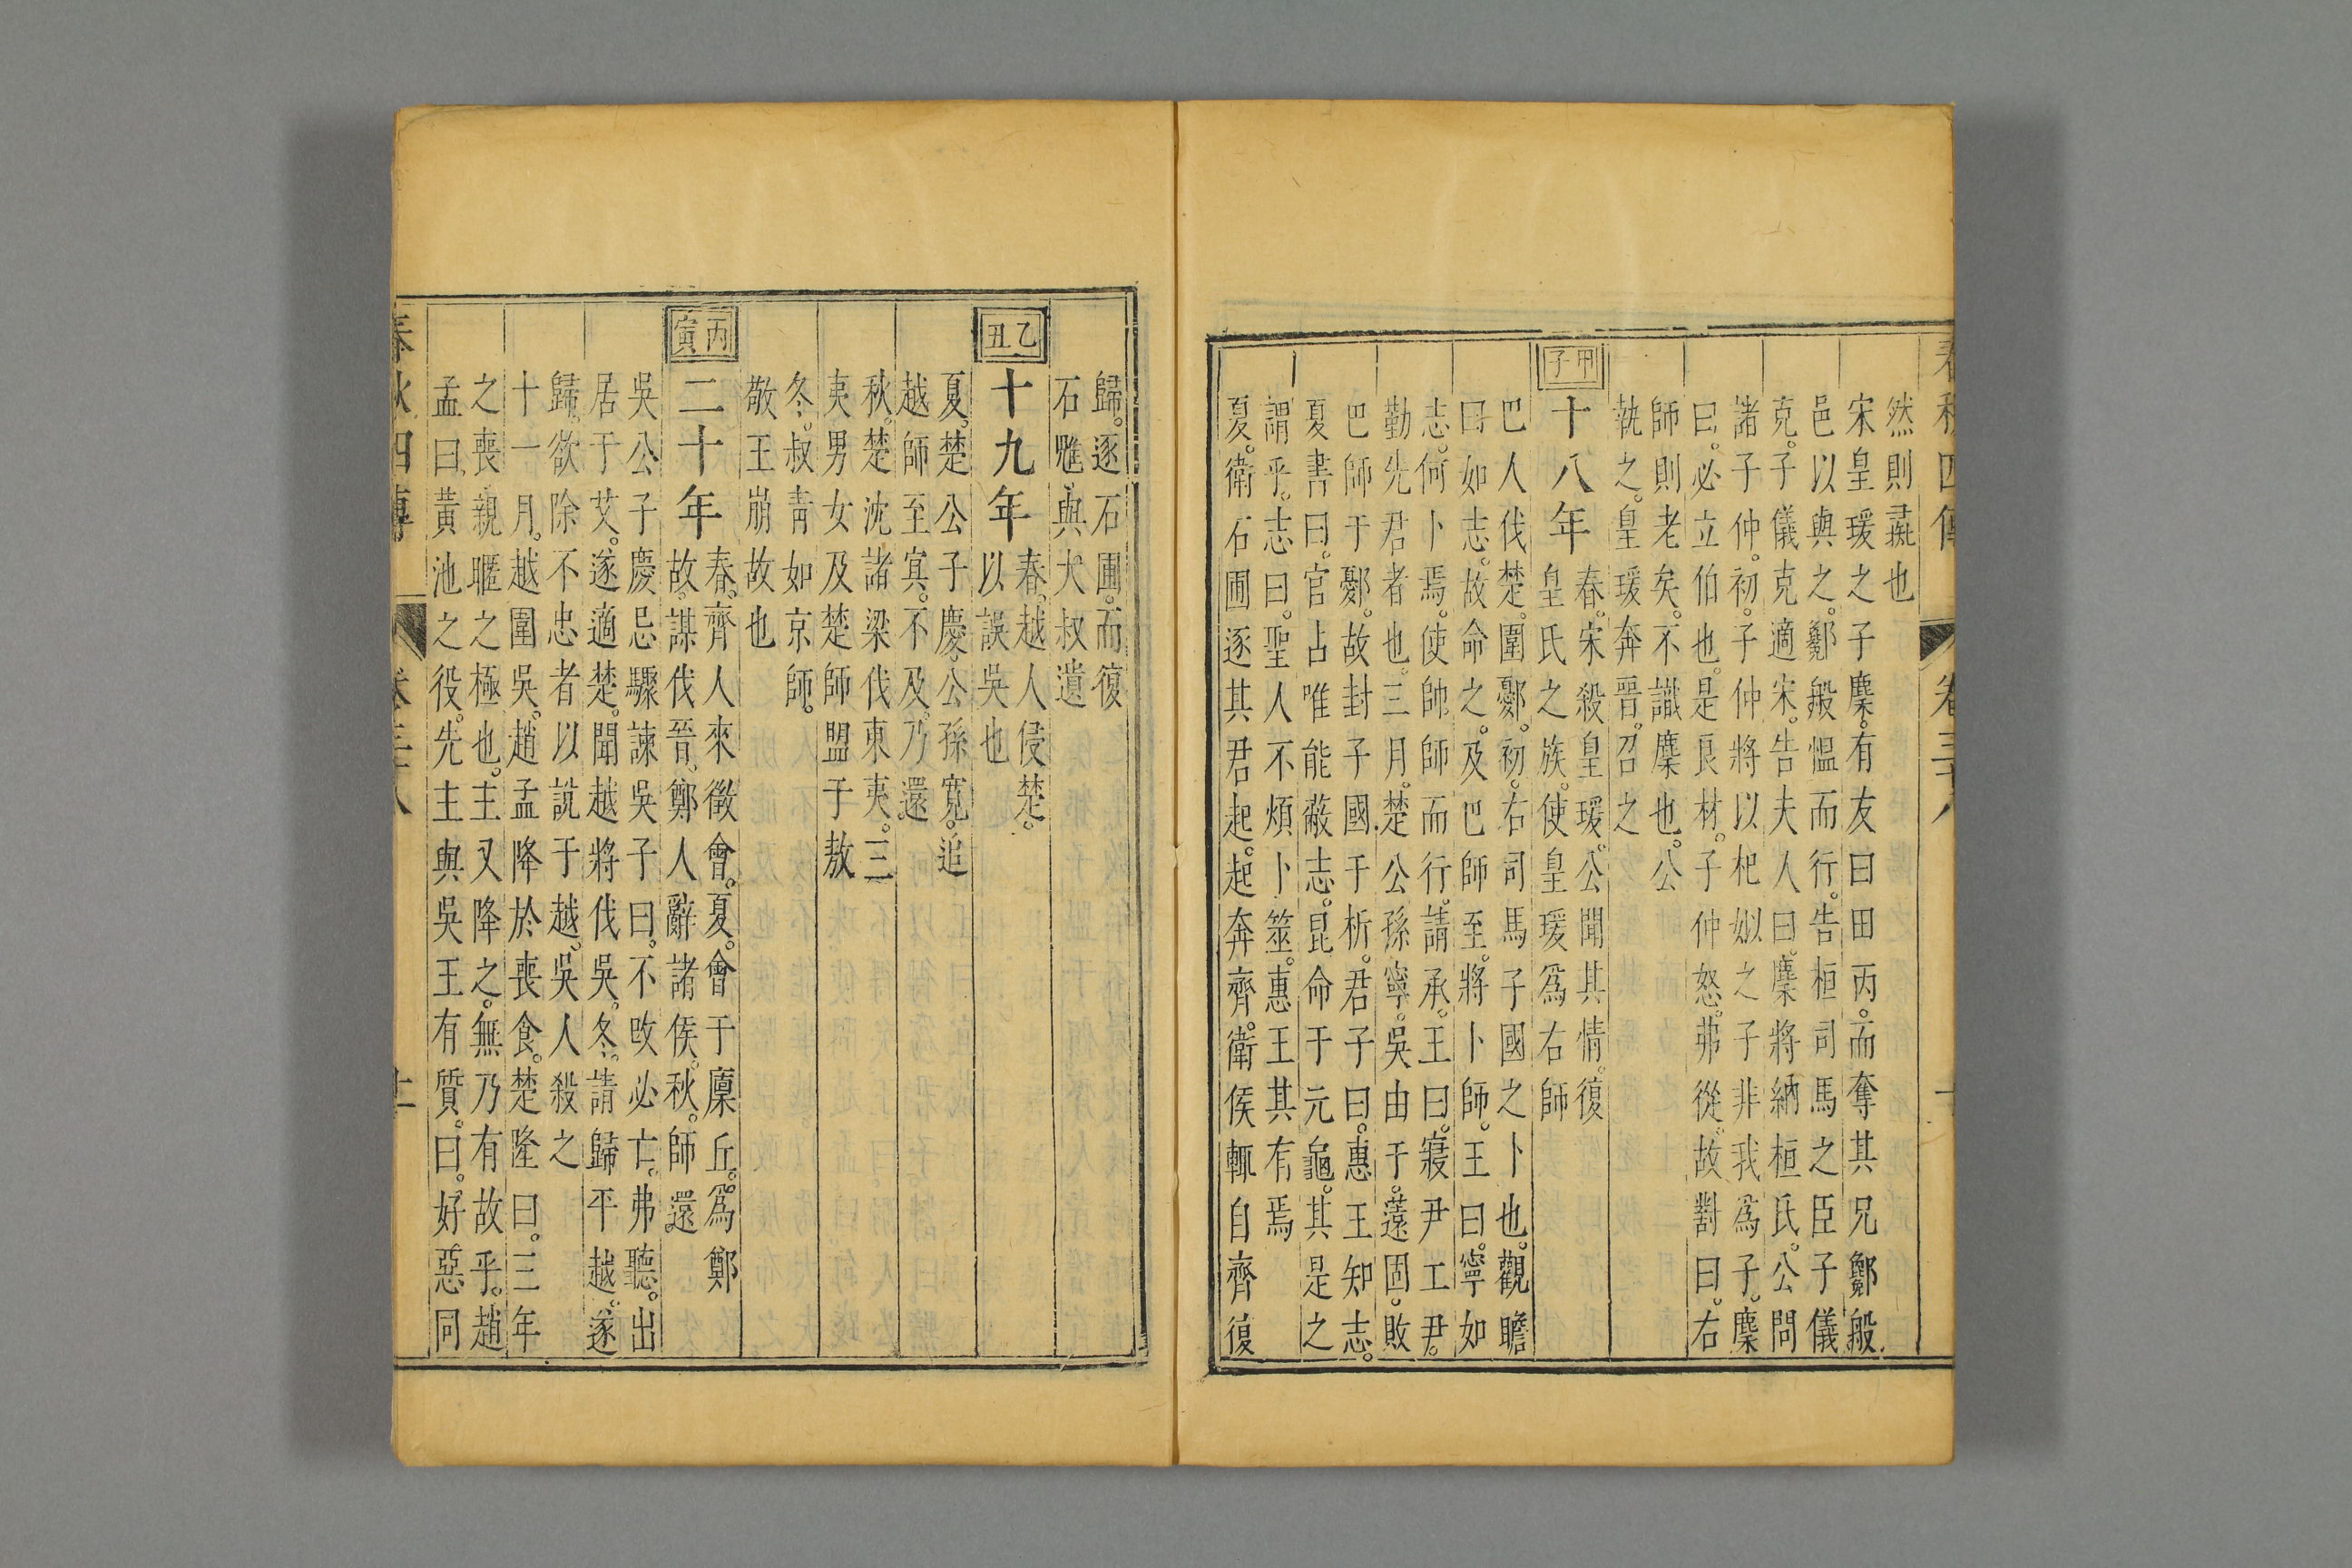 春秋四傳 卷三十八 十
然則彘也
宋皇瑗之子麇。有友曰田丙。而奪其兄鄭般
邑以與之。鄭般慍而行。告桓司馬之臣子儀
克。子儀克適宋。告夫人曰。麇將納桓氏。公問
諸子仲。初。子仲將以杞姒之子非我爲子。麇
曰。必立伯也。是良材。子仲怒。弗從。故對曰。右
師則老矣。不識麇也。公
執之。皇瑗奔晉。召之
甲子
十八年
春。宋殺皇瑗。公聞其情。復
皇氏之族。使皇瑗爲右師
巴人伐楚。圍鄾。初。右司馬子國之卜也。觀瞻
曰如志。故命之。及巴師至。將卜師。王曰。寧如
志。何卜焉。使帥師而行。請承。王曰。寢尹工尹。
勤先君者也。三月。楚公孫寧。吳由于。薳固。敗
巴師于鄾。故封子國于析。君子曰。惠王知志。
夏書曰。官占唯能蔽志。昆命于元龜。其是之
謂乎。志曰。聖人不煩卜筮。惠王其有焉
夏。衛石圃逐其君起。起奔齊。衛侯輒自齊復
歸。逐石圃。而復
石魋與大叔遺
乙丑
十九年
春。越人侵楚。
以誤吳也
夏。楚公子慶。公孫寬。追
越師至冥。不及。乃還
秋。楚沈諸梁伐東夷。三
夷男女及楚師盟于敖
冬。叔靑如京師。
敬王崩故也
丙寅
二十年
春。齊人來徵會。夏。會于廩丘。爲鄭
故。謀伐晉。鄭人辭諸侯。秋。師還
吳公子慶忌驟諫吳子曰。不攺必亡。弗聽。出
居于艾。遂適楚。聞越將伐吳。冬。請歸平越。遂
歸。欲除不忠者以說于越。吳人殺之
十一月。越圍吳。趙孟降於喪食。楚隆曰。三年
之喪。親暱之極也。主又降之。無乃有故乎。趙
孟曰。黃池之役。先主與吳王有質。曰。好惡同
春秋四傳 卷三十八 十一